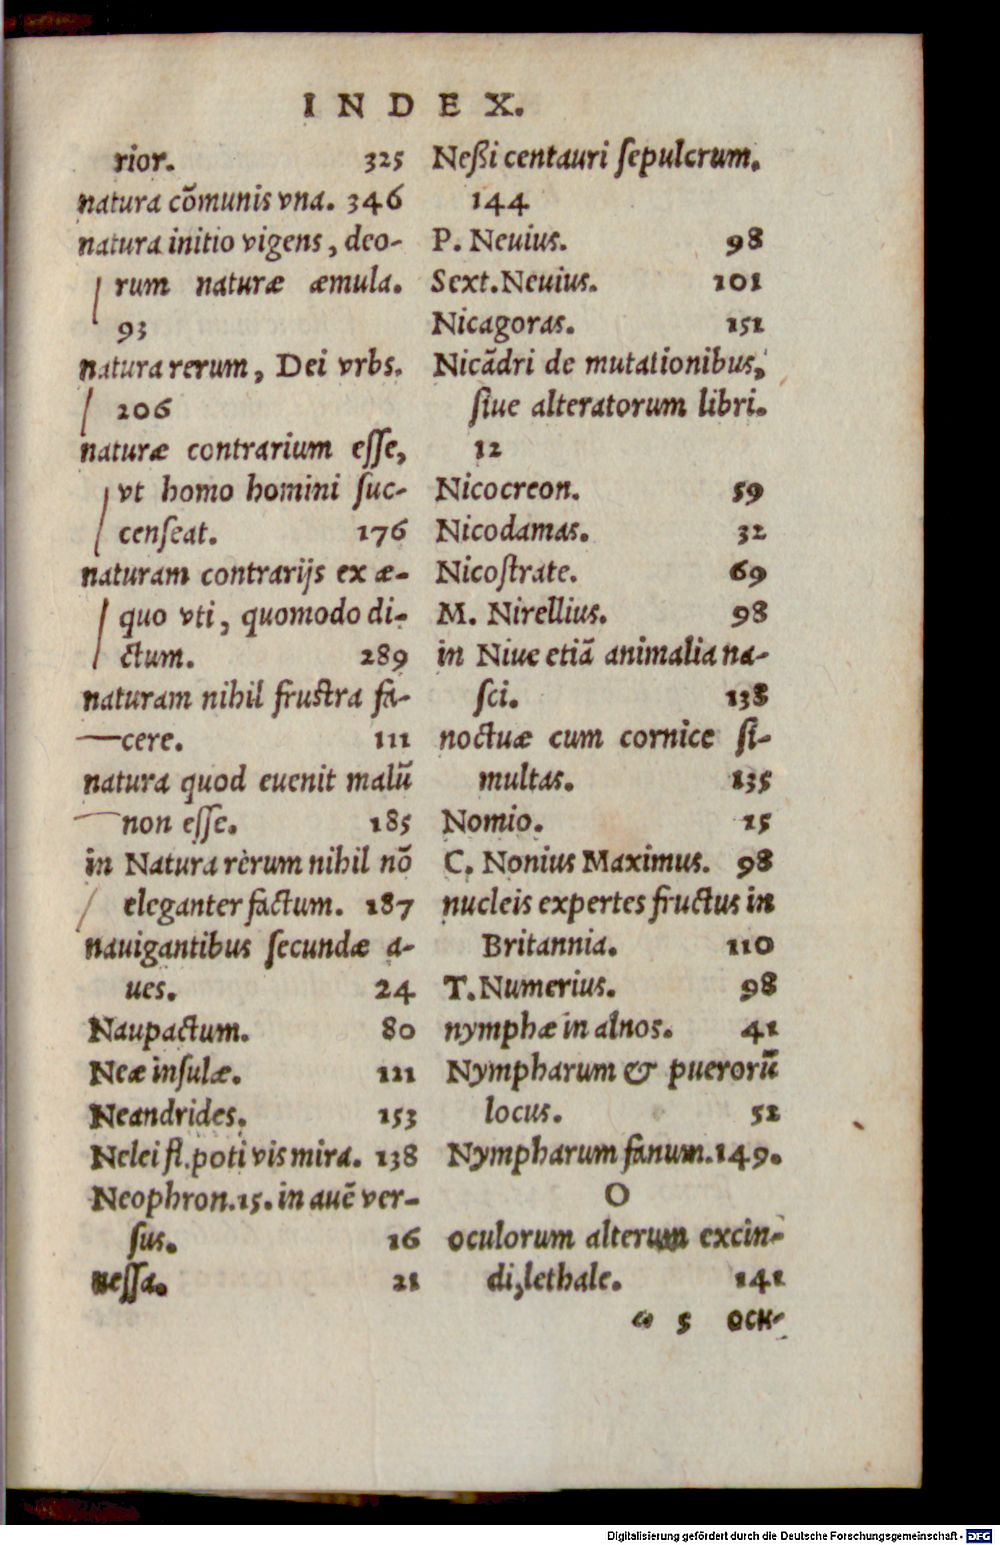 INDEX.
rior. 325
natura cōmunis vna. 346
natura initio vigens, deo-
rum naturæ æmula.
93
natura rerum, Dei vrbs.
206
naturæ contrarium esse,
vt homo homini suc-
censeat. 176
naturam contrarijs ex æ-
quo vti, quomodo di-
ctum. 289
naturam nihil frustra fa-
cere. 111
natura quod euenit malū
non esse. 185
in Natura rerum nihil nō
eleganter factum. 187
nauigantibus secundæ a-
ues. 24
Naupactum. 80
Neæ insulæ. 111
Neandrides. 153
Nelei fl. poti vis mira. 138
Neophron. 15. in auē ver-
sus. 16
nessa. 21
Neßi centauri sepulcrum.
144
P. Neuius. 98
Sext. Neuius. 101
Nicagoras. 151
Nicādri de mutationibus,
siue alteratorum libri.
12
Nicocreon. 59
Nicodamas. 32
Nicostrate. 69
M. Nirellius. 98
in Niue etiā animalia na-
sci. 138
noctuæ cum cornice si-
multas. 135
Nomio. 15
C. Nonius Maximus. 98
nucleis expertes fructus in
Britannia. 110
T. Numerius. 98
nymphæ in alnos. 41
Nympharum & puerorū
locus. 52
Nympharum fanum. 149.
O
oculorum alterum excin-
di, lethale. 141
5
Digitalisierung gefördert durch die Deutsche Forschungsgemeinschaft - DFG